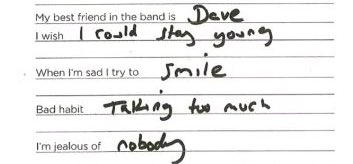 My best friend in the band is Dave
I wish I could stay young
When I'm sad I try to smile
Bad habit Talking too much
I'm jealous of nobody